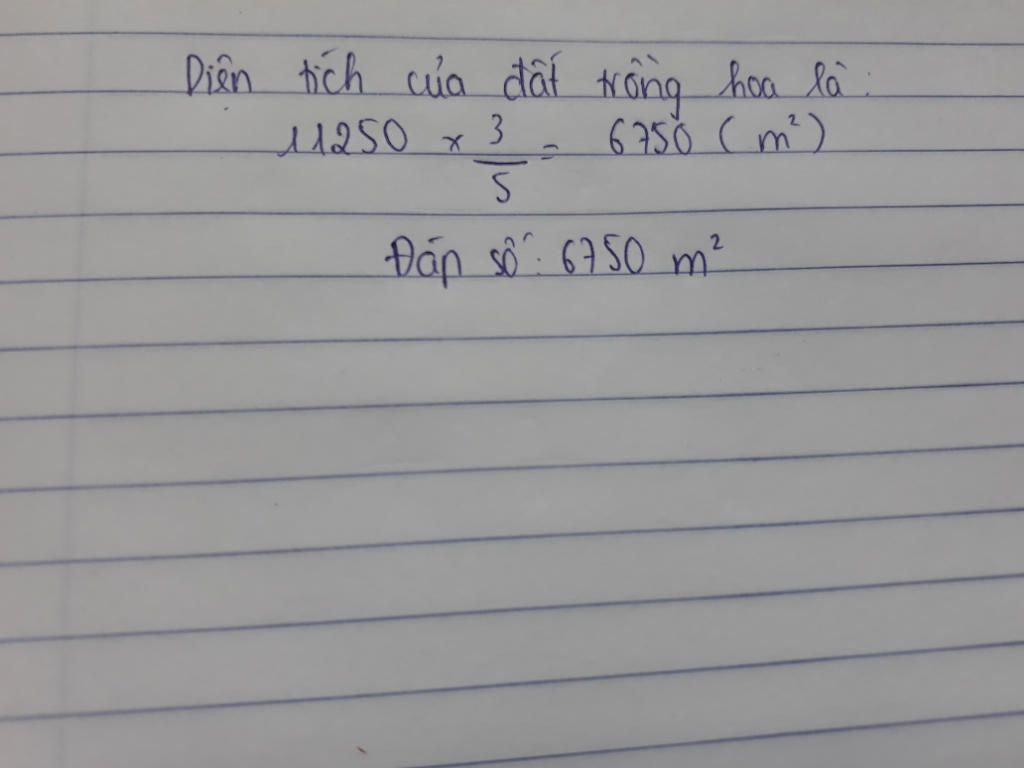 Diện tích của đất trồng hoa là:
11250 x 3/5 = 6750 (m²)
Đáp số: 6750 m²